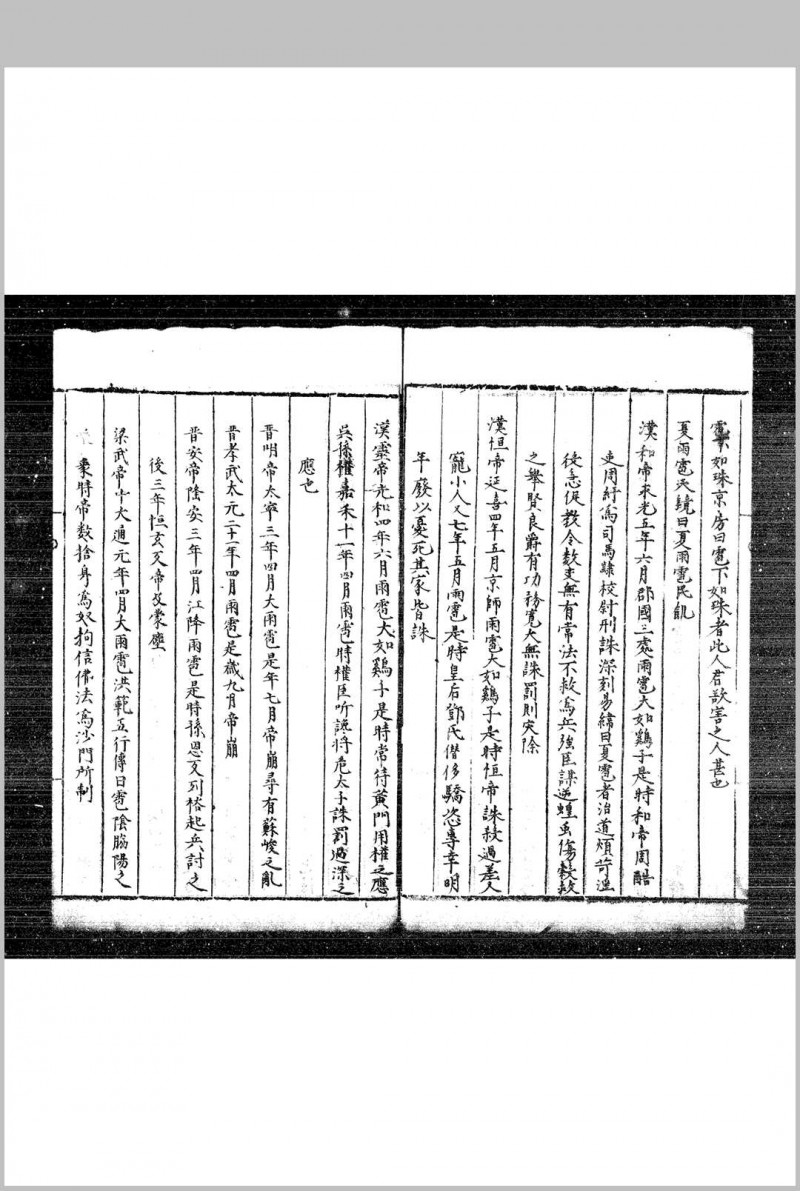 雹如珠京房曰雹下如珠者此人君故害之人甚也
夏雨雹天鏡曰夏雨雹民飢
漢和帝永光五年六月郡國三處雨雹大如鷄子是時和帝周酷
吏周紆為司馬隸校尉刑誅深刻易緯曰夏雹者治道煩苛溫
徭急促教令数变無有常法不救為兵強臣謀逆蝗虫傷穀救
之舉賢良爵有功務寬大無誅罰則灾除
漢恒帝延喜四年五月京師雨雹大如鷄子是時恒帝誅殺過差人
寵小人又七年五月雨雹是時皇后鄧氏僭侈驕恣專幸明
年廢以憂死其家皆誅
漢靈帝光和四年六月雨雹大如鷄子是時常侍黄門用權之應
吳孫權嘉禾十一年四月雨雹時權臣听讒将危太子誅罰過深之
應也
晋明帝太寧三年四月大雨雹是年七月帝崩尋有蘇峻之亂
晋孝武太元二十一年四月雨雹是歲九月帝崩
晋安帝隆安三年四月江降雨雹是時孫恩反刘裕起兵討之
後三年恒玄反帝及蒙塵
梁武帝中大通元年四月大雨雹洪範五行傳曰雹陰脇陽之
時帝数捨身為奴拘信佛法為沙門所制